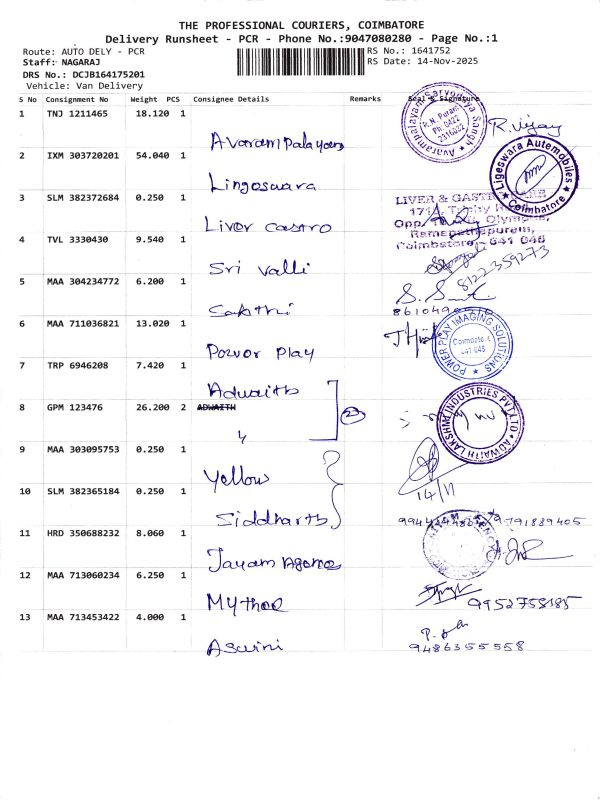 THE PROFESSIONAL COURIERS, COIMBATORE
Delivery Runsheet - PCR - Phone No.:9047080280 - Page No.:1
Route: AUTO DELY - PCR RS No.: 1641752
Staff: NAGARAJ RS Date: 14-Nov-2025
DRS No.: DCJB164175201
Vehicle: Van Delivery
S No Consignment No Weight PCS Consignee Details Remarks Seal & Signature
1 TNJ 1211465 18.120 1
Avarampalayam
R.N. Puram
Ph: 0422
2316222
R. Vijay
2 IXM 303720201 54.040 1
Lingeswara
Ligeswara Automobiles
Coimbatore
3 SLM 382372684 0.250 1
Livor castro
LIVER & GASTRO
Ramanathapuram,
Coimbatore - 641 045
4 TVL 3330430 9.540 1
Sri valli
8122359273
5 MAA 304234772 6.200 1
Sakthi
6 MAA 711036821 13.020 1
Powor Play
POWER PLAY IMAGING SOLUTIONS
7 TRP 6946208 7.420 1
Adwaith
8 GPM 123476 26.200 2 ADWAITH
ADWAITH LAKSHMI INDUSTRIES PVT LTD
9 MAA 303095753 0.250 1
Yellow
14/11
10 SLM 382365184 0.250 1
Siddharth
9791889405
11 HRD 350688232 8.060 1
Jayam Agence
12 MAA 713060234 6.250 1
Mythree
9952758185
13 MAA 713453422 4.000 1
Aswini
9486355558